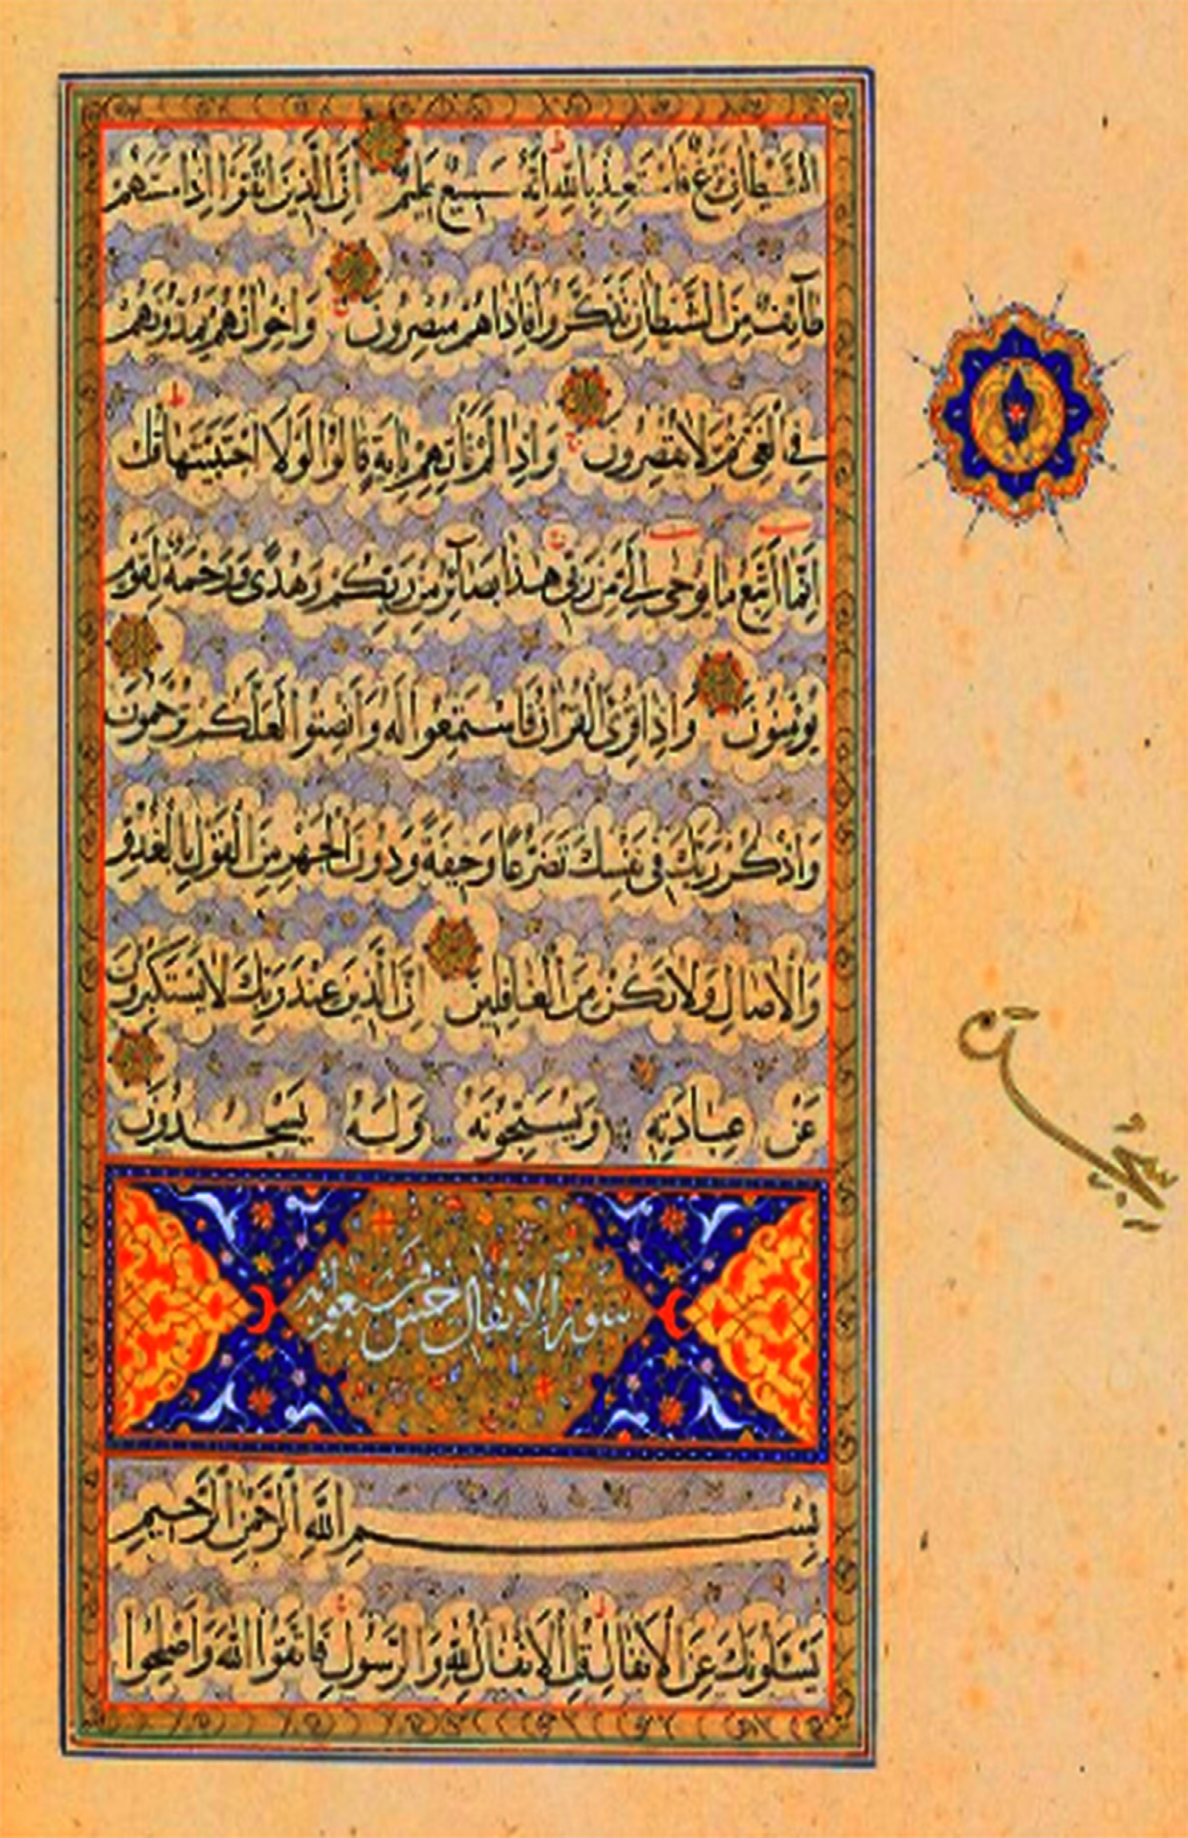 الشَّيْطَانِ نَزْغٌ فَاسْتَعِذْ بِاللّٰهِ اِنَّهُ سَمِيعٌ عَلِيمٌ اِنَّ الَّذِينَ اتَّقَوْا اِذَا مَسَّهُمْ
طَآئِفٌ مِنَ الشَّيْطَانِ تَذَكَّرُوا فَاِذَا هُمْ مُبْصِرُونَ وَاِخْوَانُهُمْ يَمُدُّونَهُمْ
فِي الْغَيِّ ثُمَّ لَا يُقْصِرُونَ وَاِذَا لَمْ تَأْتِهِمْ بِاٰيَةٍ قَالُوا لَوْلَا اجْتَبَيْتَهَا قُلْ
اِنَّمَا اَتَّبِعُ مَا يُوحٰى اِلَيَّ مِنْ رَبِّي هٰذَا بَصَآئِرُ مِنْ رَبِّكُمْ وَهُدًى وَرَحْمَةٌ لِقَوْمٍ
يُؤْمِنُونَ وَاِذَا قُرِئَ الْقُرْاٰنُ فَاسْتَمِعُوا لَهُ وَاَنْصِتُوا لَعَلَّكُمْ تُرْحَمُونَ
وَاذْكُرْ رَبَّكَ فِي نَفْسِكَ تَضَرُّعًا وَخِيفَةً وَدُونَ الْجَهْرِ مِنَ الْقَوْلِ بِالْغُدُوِّ
وَالْاٰصَالِ وَلَا تَكُنْ مِنَ الْغَافِلِينَ اِنَّ الَّذِينَ عِنْدَ رَبِّكَ لَا يَسْتَكْبِرُونَ
عَنْ عِبَادَتِهِ وَيُسَبِّحُونَهُ وَلَهُ يَسْجُدُونَ
سورة الانفال خمس وسبعون اية
بِسْمِ اللّٰهِ الرَّحْمٰنِ الرَّحِيمِ
يَسْئَلُونَكَ عَنِ الْاَنْفَالِ قُلِ الْاَنْفَالُ لِلّٰهِ وَالرَّسُولِ فَاتَّقُوا اللّٰهَ وَاَصْلِحُوا